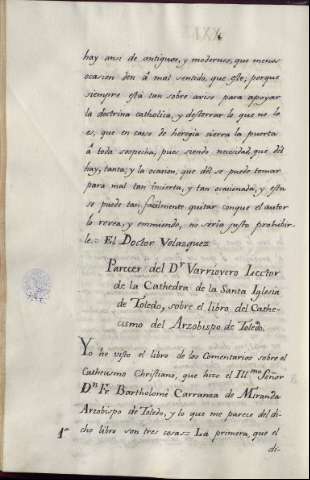 hay ansi de antiguos, y modernos, que menos
ocasion den á mal sentido, que este; porque
siempre está tan sobre aviso para apoyar
la doctrina catholica, y desterrar lo que no lo
es, que en caso de heregia cierra la puerta
á toda sospecha, pues siendo necesidad, que dél
hay, tanta; y la ocasion, que dél se puede tomar
para mal tan incierta, y tan ocasionada, y esta
se puede tan facilmente quitar conque el autor
lo revea, y enmiende, no sería justo prohibir-
le. El Doctor Velazquez
Parecer del Dr. Varriovero Lector
de la Cathedra de la Santa Iglesia
de Toledo, sobre el libro del Cathe-
cismo del Arzobispo de Toledo.
Yo he visto el libro de los Comentarios sobre el
Cathecismo Christiano, que hizo el Illmo. Señor
Dn. Fr. Bartholomé Carranza de Miranda
Arzobispo de Toledo, y lo que me parece del di-
1a cho libro son tres cosas= La primera, que el
di-